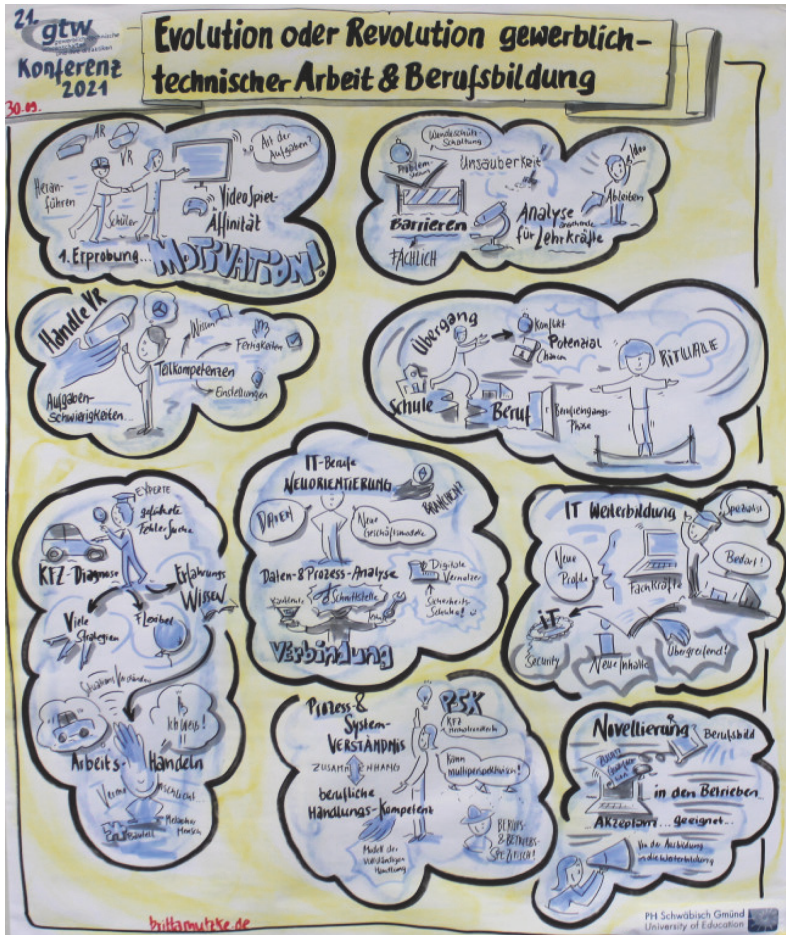 21.
gtw
Konferenz
2021
30.09.
Evolution oder Revolution gewerblich-
technischer Arbeit & Berufsbildung
AR
VR
Art der
Aufgaben?
Heran-
führen
Schüler
Videospiel-
Affinität
1. Erprobung...
MOTIVATION!
Wendeschütz-
Schaltung
Problem-
Unsauberkeit
Idee
Ableiten
Barrieren
FACHLICH
Analyse
für Lehrkräfte
HandleVR
Wissen
Fertigkeiten
Teilkompetenzen
Einstellungen
Aufgaben-
Schwierigkeiten...
Übergang
Konflikt
Potenzial
Chancen
RITUALE
Schule
Beruf
Berufseingangs-
Phase
EXPERTE
geführte
Fehlersuche
KFZ-Diagnose
Erfahrungs
Wissen
Viele
Strategien
Flexibel
Situationsverständnis
Ich weiß!
Arbeits-
Handeln
Bauteil
Mensch
IT-Berufe
NEUORIENTIERUNG
BRANCHEN?
DATEN
Neue
Geschäftsmodelle
Daten-& Prozess-Analyse
Digitale
Vernetzer
Kaufleute
Schnittstelle
Sicherheits-
Verbindung
IT Weiterbildung
Spezialist
Neue
Profile
Fachkräfte
Bedarf!
IT
Security
Neue Inhalte
Übergreifend!
Prozess-&
System-
VERSTÄNDNIS
PSK
KFZ
ZUSAMMENHANG
Kann
multiperspektivisch!
berufliche
Handlungs-Kompetenz
Modell der
vollständigen
Handlung
BERUFS-
& BETRIEBS-
SPEZIFISCH!
Novellierung
Berufsbild
in den Betrieben...
Akzeptanz...geeignet...
Von der Ausbildung
in die Weiterbildung
brittamutzke.de
PH Schwäbisch Gmünd
University of Education